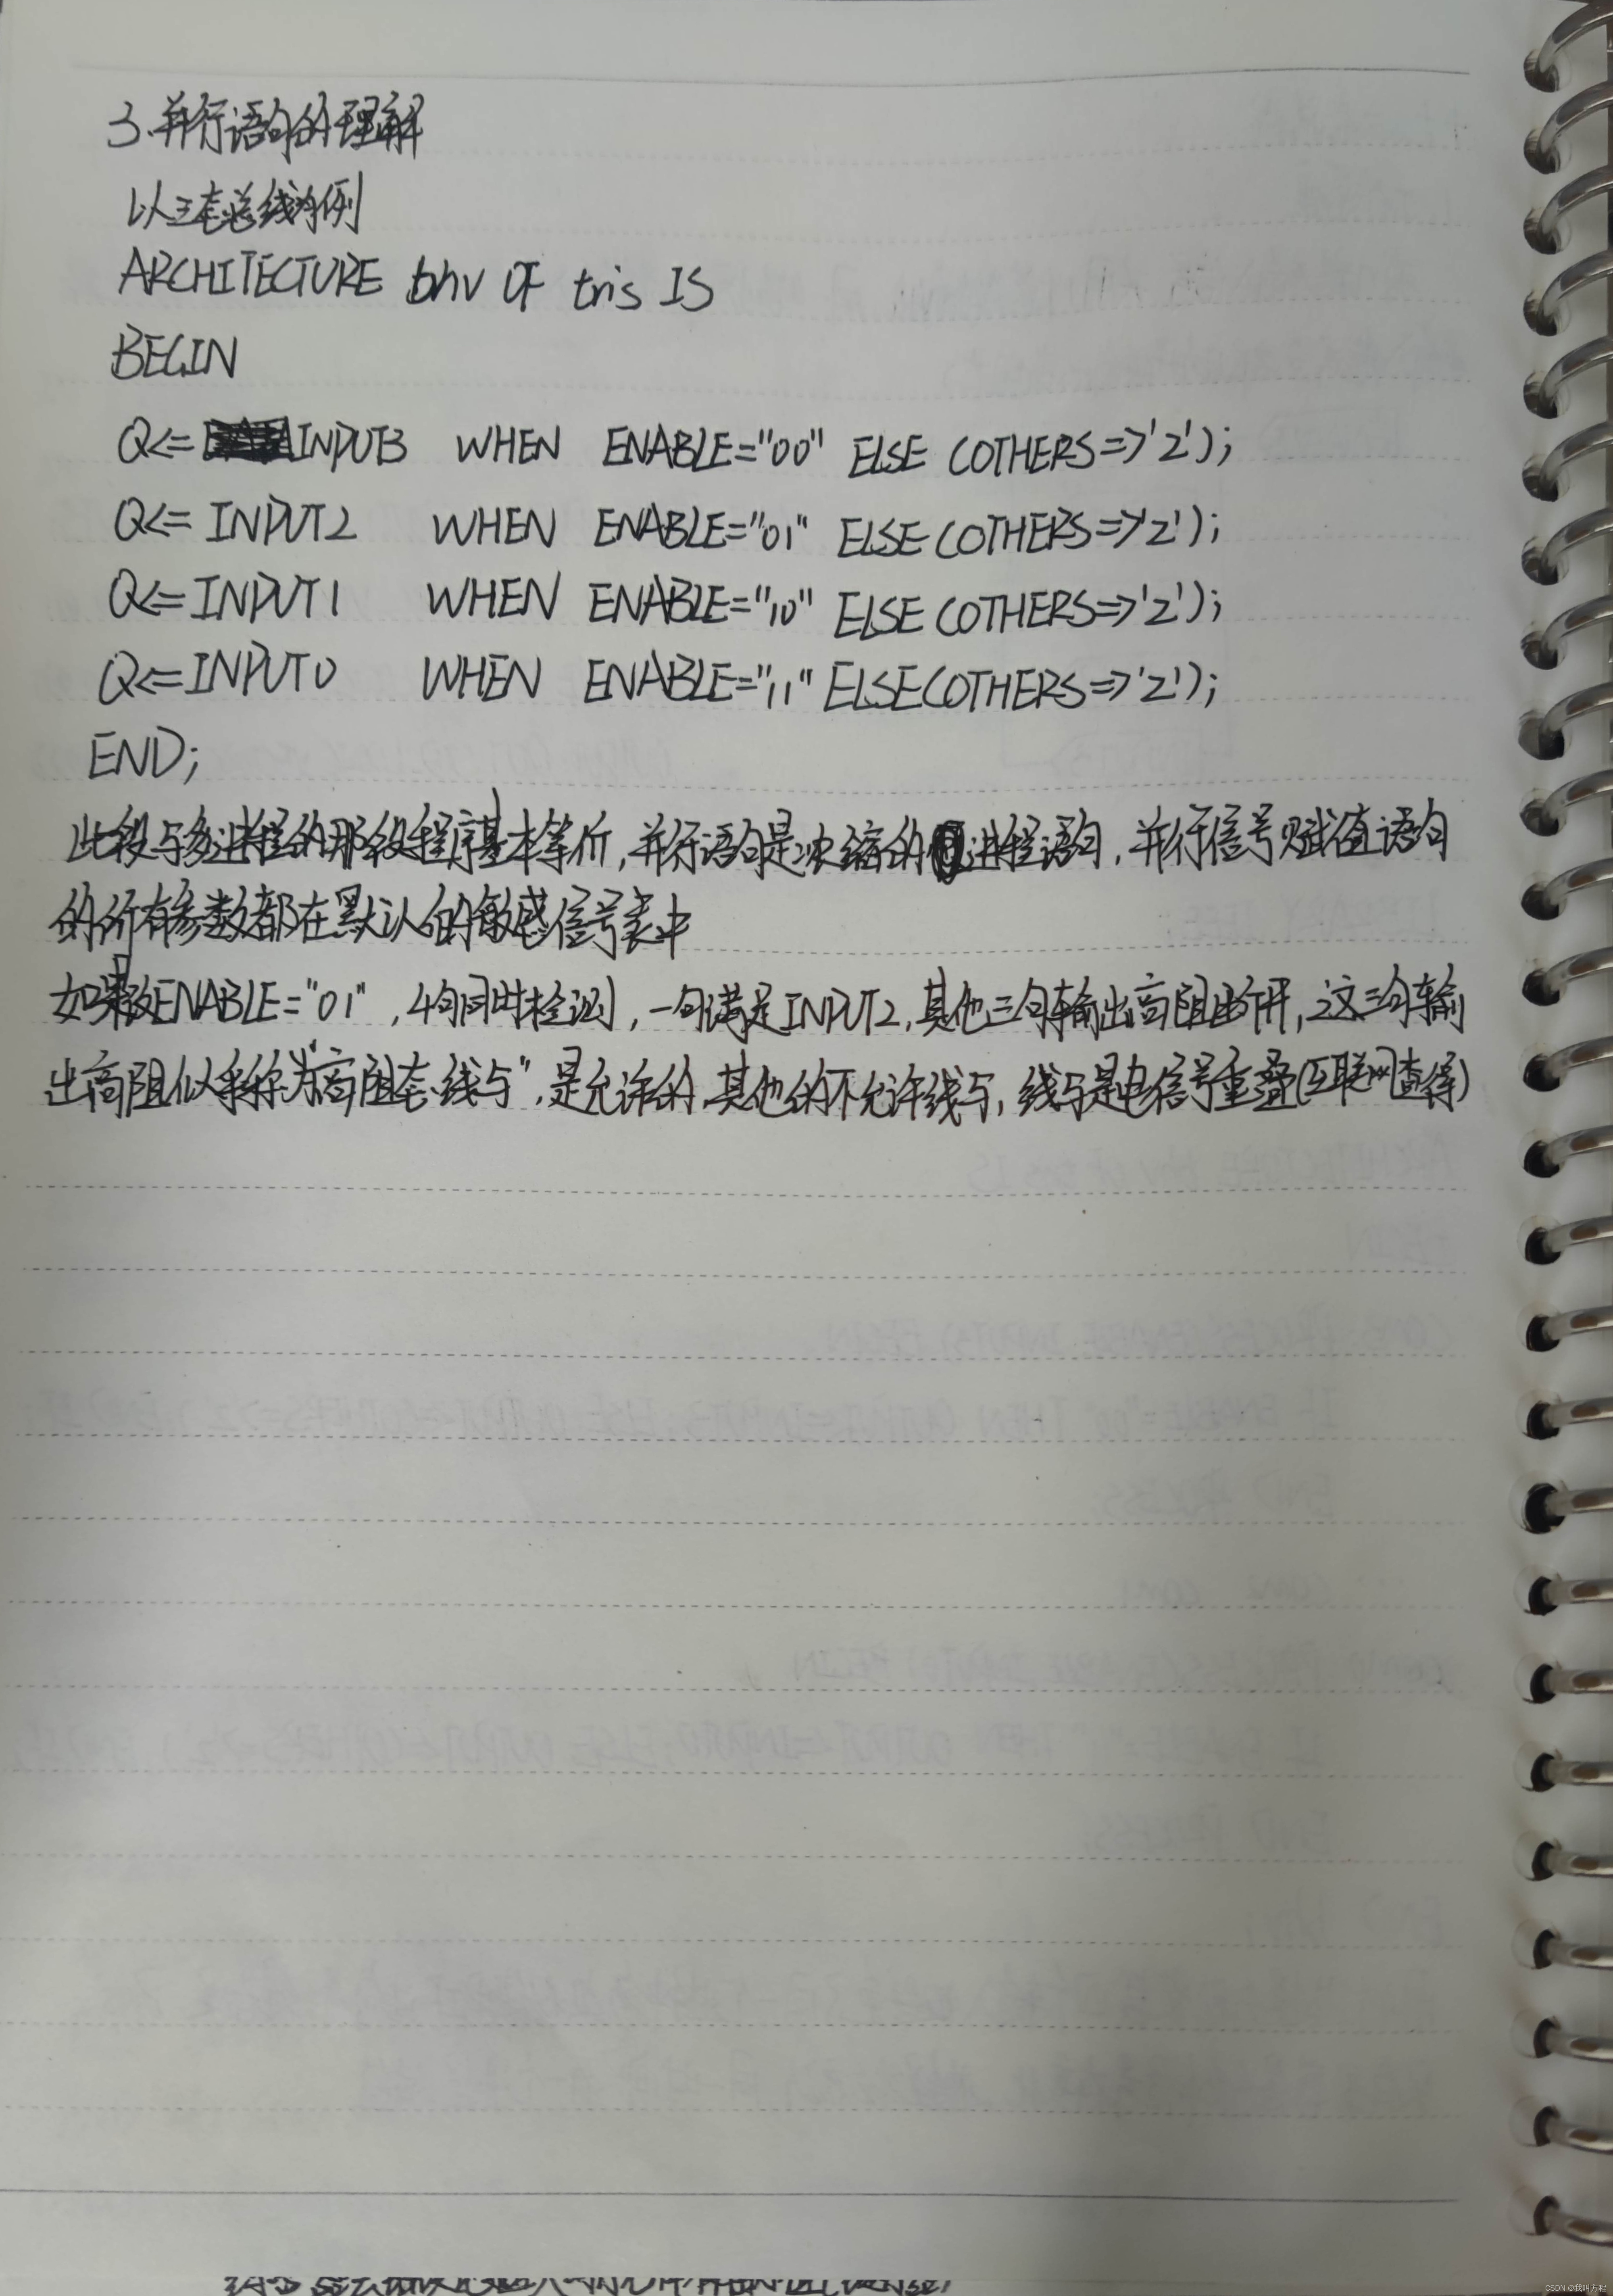 3.并行语句的理解
以三态总线为例
ARCHITECTURE bhv OF tris IS
BEGIN
Q<= INPUT3 WHEN ENABLE="00" ELSE (OTHERS=>'Z');
Q<= INPUT2 WHEN ENABLE="01" ELSE (OTHERS=>'Z');
Q<=INPUT1 WHEN ENABLE="10" ELSE (OTHERS=>'Z');
Q<=INPUT0 WHEN ENABLE="11" ELSE(OTHERS=>'Z');
END;
此段与多进程的那段程序基本等价,并行语句是浓缩的进程语句,并行信号赋值语句
的所有参数都在默认的敏感信号表中
如果ENABLE="01",4句同时检测,一句满足INPUT2,其他三句输出高阻断开,这三句输
出高阻称为"高阻态线与",是允许的,其他的不允许线与,线与是电信号重叠(互联网查得)
CSDN @我叫方程